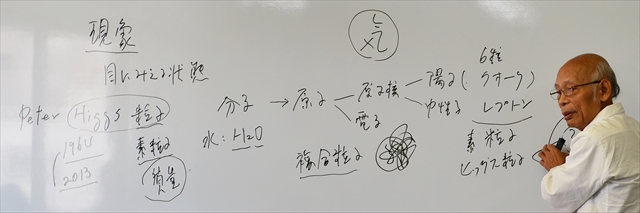 現象
目にみえる状態
Peter Higgs 粒子
1964
2013
素粒子
質量
気
分子 → 原子
水:H2O
原子核
電子
陽子(
中性子
6種
クオーク)
レプトン
複合粒子
素粒子
ヒッグス粒子